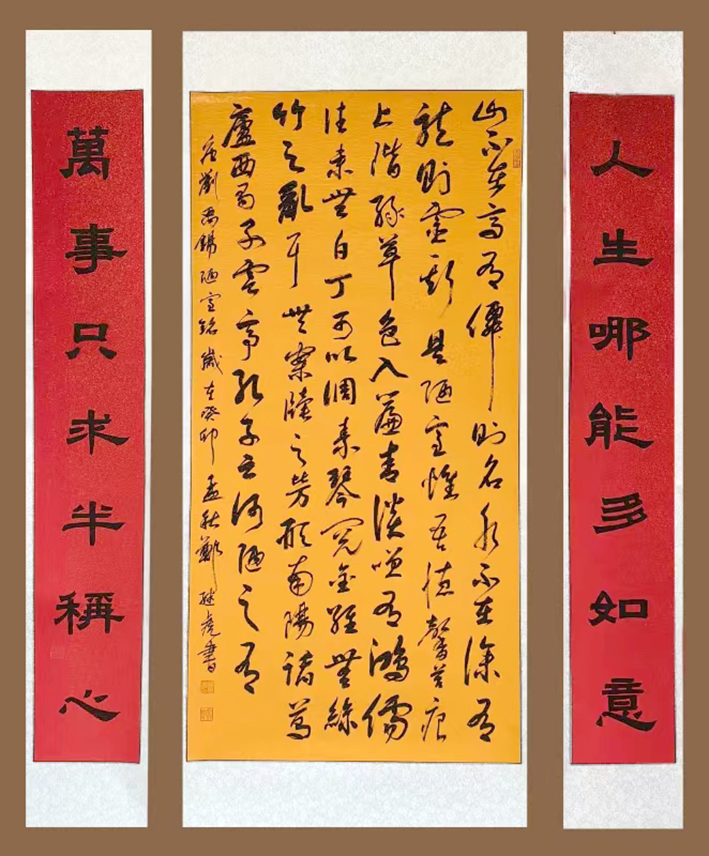 人生哪能多如意
山不在高有僊則名水不在深有
龍則靈斯是陋室惟吾德馨苔痕
上階綠草色入簾青談咲有鴻儒
往来無白丁可以調素琴閱金經無絲
竹之亂耳無案牘之勞形南陽諸葛
廬西蜀子雲亭孔子云何陋之有
唐劉禹錫陋室銘歲在癸卯孟秋鄭書
萬事只求半稱心